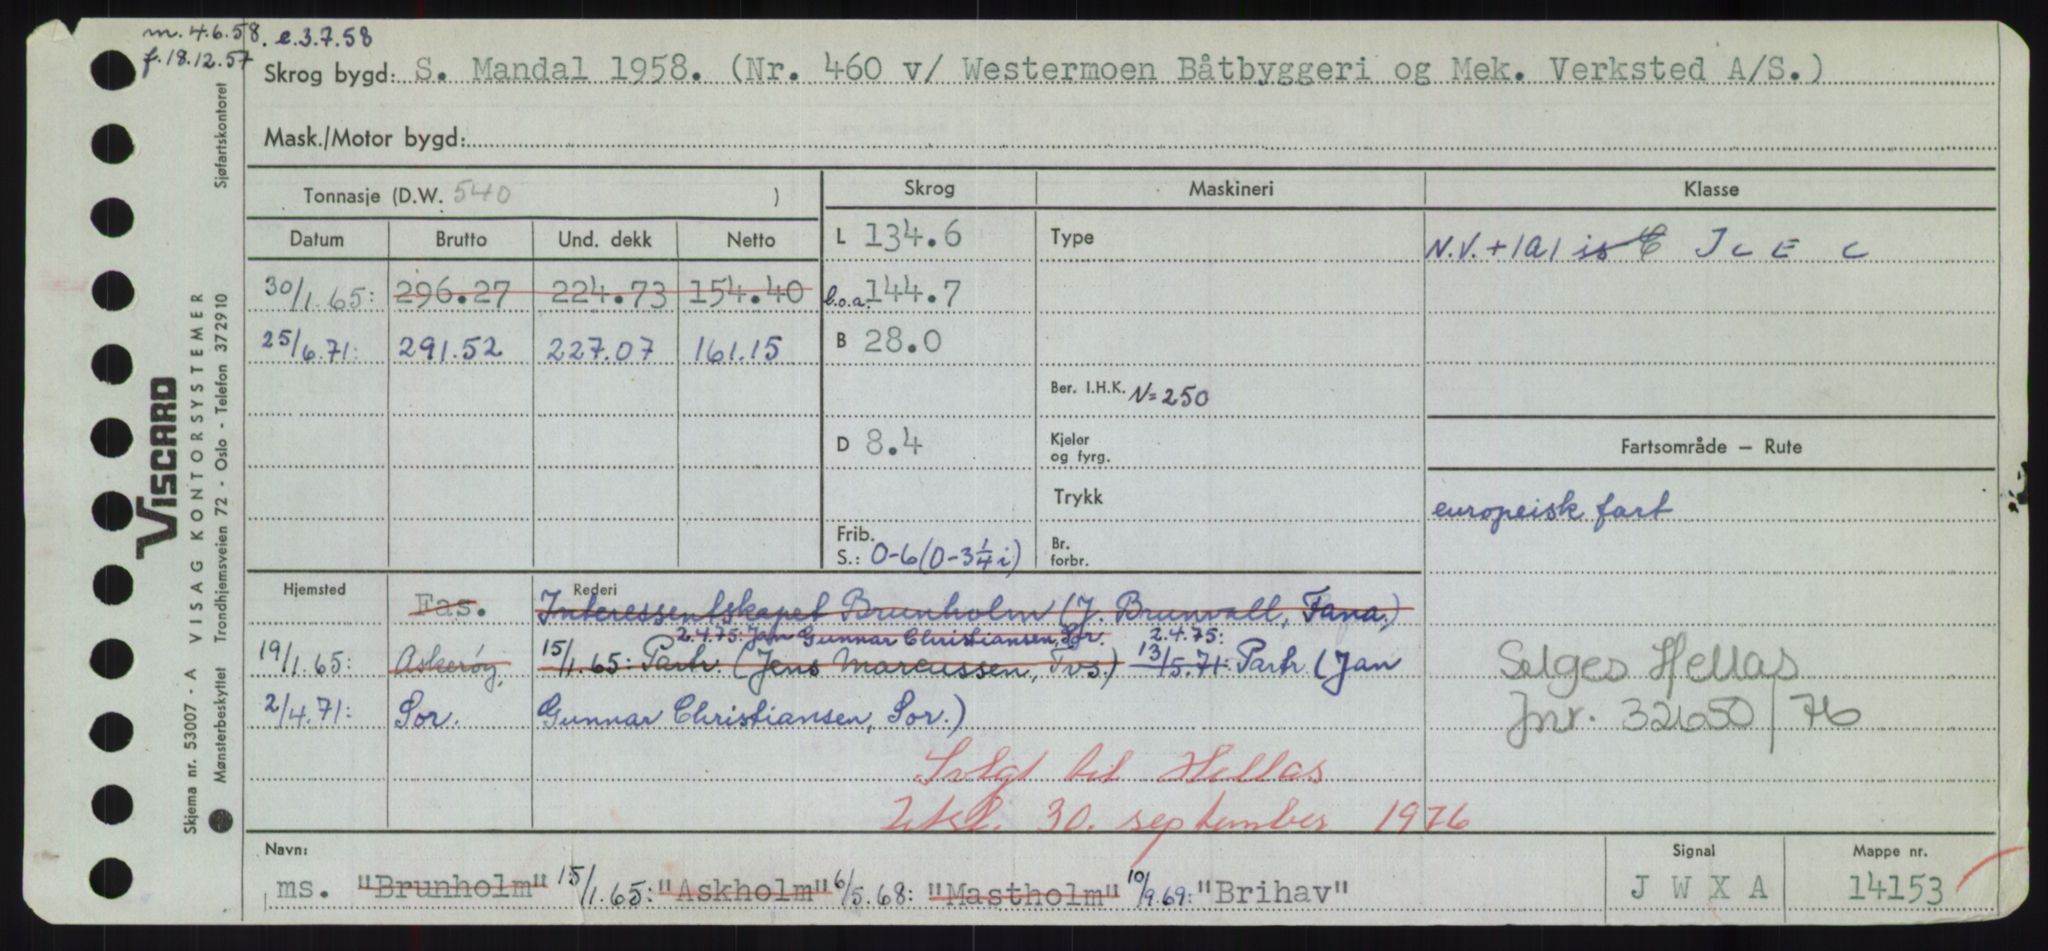 m. 4.6.58. e.3.7.58
f. 18.12.57
Skrog bygd: S. Mandal 1958. (Nr. 460 v/ Westermoen Båtbyggeri og Mek. Verksted A/S.)
Mask./Motor bygd:
Tonnasje (D.W. 540 )
Skrog Maskineri Klasse
Datum Brutto Und. dekk Netto
L 134.6 Type N.V. + 1A1 is C I C E C
30/1.65: 296.27 224.73 154.40 l.o.a. 144.7
25/6.71: 291.52 227.07 161.15 B 28.0
Ber. I.H.K. N=250
D 8.4 Kjeler og fyrg.
Fartsområde — Rute
Trykk
europeisk fart
Frib. S.: 0-6 (0-3 1/4 i) Br. forbr.
Hjemsted Rederi
Fas. Interessentskapet Brunholm (J. Brunvall, Fana.)
2.4.75: Jan Gunnar Christiansen, Sor. 2.4.75:
19/1.65: Askerøy, 15/1.65: Partr. (Jens Marcussen, Tvs.) 13/5.71: Partr (Jan
2/4.71: Sor. Gunnar Christiansen, Sor.)
Selges Hellas
Jnr. 32650/76
Solgt til Hellas
Utsl. 30. september 1976
Navn: Signal Mappe nr.
ms. "Brunholm" 15/1.65: "Askholm" 6/5.68: "Mastholm" 10/9.69: "Brihav" J W X A 14153
VISCARD
Skjema nr. 53007 - A VISAG KONTORSYSTEMER
Mønsterbeskyttet Trondhjemsveien 72 - Oslo - Telefon 372910 Sjøfartskontoret